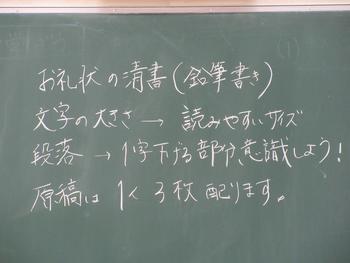 ①
お礼状の清書(鉛筆書き)
文字の大きさ → 読みやすいサイズ
段落 → 1字下げる部分、意識しよう!
原稿は1人3枚配ります。